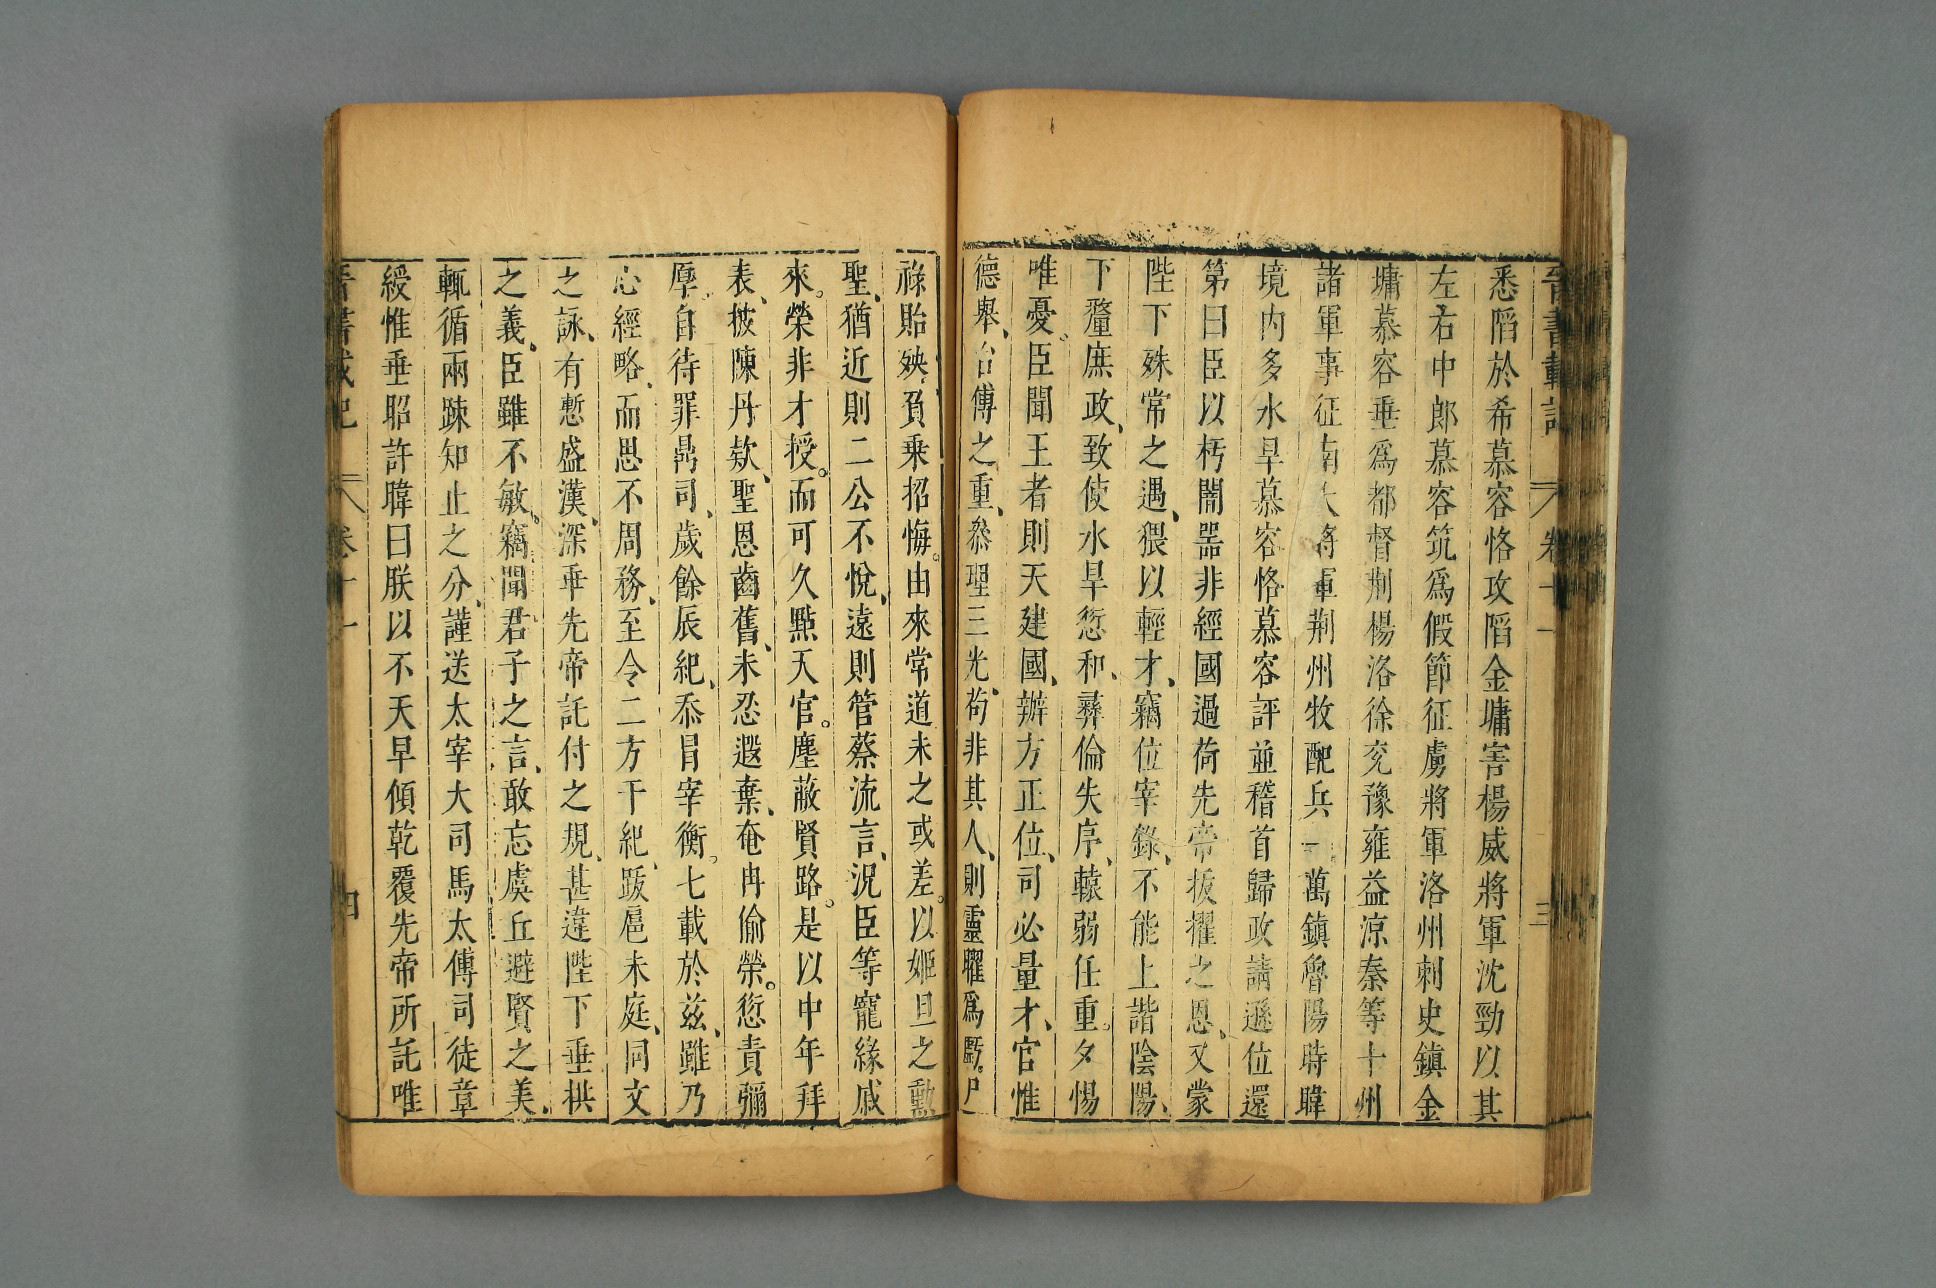 晉書載記 卷十一 三
悉䧟於希慕容恪攻䧟金墉害楊威將軍沈勁以其
左右中郎慕容筑爲假節征虜將軍洛州刺史鎮金
墉慕容垂爲都督荆楊洛徐兖豫雍益涼秦等十州
諸軍事征南大將軍荆州牧配兵一萬鎮魯陽時暐
境内多水旱慕容恪慕容評並稽首歸政請遜位還
第曰臣以朽闇器非經國過荷先帝拔擢之恩、又蒙
陛下殊常之遇、猥以輕才、竊位宰錄、不能上諧陰陽、
下釐庶政、致使水旱愆和、彝倫失序、轅弱任重。夕惕
唯憂。臣聞王者則天建國、辨方正位、司必量才、官惟
德舉、台傅之重、叅理三光、苟非其人、則靈曜爲虧。尸
祿貽殃、負乗招悔。由來常道未之或差。以姬旦之勲
聖、猶近則二公不悅、遠則管蔡流言、況臣等寵緣戚
來。榮非才授。而可久點天官。塵蔽賢路。是以中年拜
表、披陳丹欵、聖恩齒舊、未忍遐棄、奄冉偷榮。愆責彌
厚。自待罪鼎司、歲餘辰紀、忝冒宰衡。七載於兹、雖乃
心經略、而思不周務、至令二方干紀、跋扈未庭、同文
之詠、有慙盛漢、深乖先帝託付之規、甚違陛下垂拱
之義、臣雖不敏。竊聞君子之言、敢忘虞丘避賢之美、
輒循兩疎知止之分、謹送太宰大司馬太傅司徒章
綬惟垂昭許暐曰朕以不天早傾乾覆先帝所託唯
晉書載記 卷十一 四